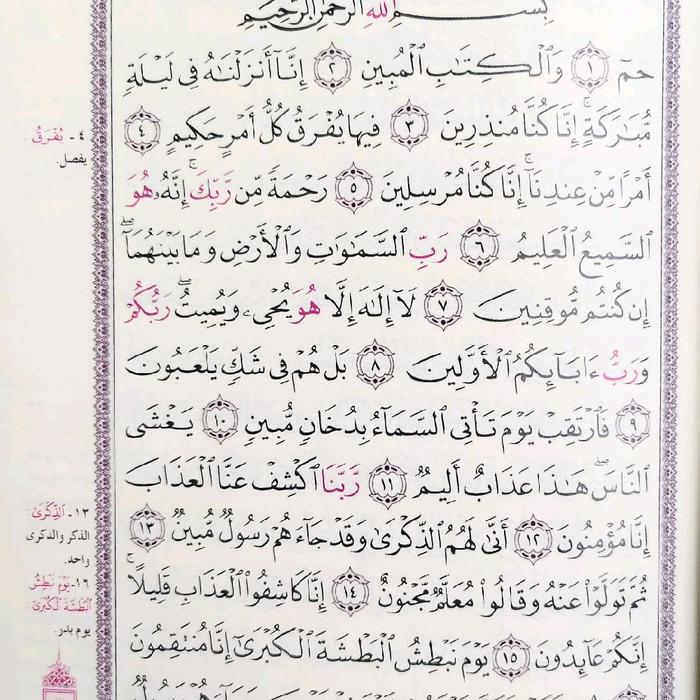 بِسْمِ اللَّهِ الرَّحْمَٰنِ الرَّحِيمِ
حمٓ ﴿١﴾ وَالْكِتَابِ الْمُبِينِ ﴿٢﴾ إِنَّا أَنزَلْنَاهُ فِي لَيْلَةٍ
مُّبَارَكَةٍ ۚ إِنَّا كُنَّا مُنذِرِينَ ﴿٣﴾ فِيهَا يُفْرَقُ كُلُّ أَمْرٍ حَكِيمٍ ﴿٤﴾
أَمْرًا مِّنْ عِندِنَا ۚ إِنَّا كُنَّا مُرْسِلِينَ ﴿٥﴾ رَحْمَةً مِّن رَّبِّكَ ۚ إِنَّهُ هُوَ
السَّمِيعُ الْعَلِيمُ ﴿٦﴾ رَبِّ السَّمَاوَاتِ وَالْأَرْضِ وَمَا بَيْنَهُمَا ۖ
إِن كُنتُم مُّوقِنِينَ ﴿٧﴾ لَا إِلَٰهَ إِلَّا هُوَ يُحْيِي وَيُمِيتُ ۖ رَبُّكُمْ
وَرَبُّ ءَابَائِكُمُ الْأَوَّلِينَ ﴿٨﴾ بَلْ هُمْ فِي شَكٍّ يَلْعَبُونَ
﴿٩﴾ فَارْتَقِبْ يَوْمَ تَأْتِي السَّمَاءُ بِدُخَانٍ مُّبِينٍ ﴿١٠﴾ يَغْشَى
النَّاسَ ۖ هَٰذَا عَذَابٌ أَلِيمٌ ﴿١١﴾ رَّبَّنَا اكْشِفْ عَنَّا الْعَذَابَ
إِنَّا مُؤْمِنُونَ ﴿١٢﴾ أَنَّىٰ لَهُمُ الذِّكْرَىٰ وَقَدْ جَاءَهُمْ رَسُولٌ مُّبِينٌ ﴿١٣﴾
ثُمَّ تَوَلَّوْا عَنْهُ وَقَالُوا مُعَلَّمٌ مَّجْنُونٌ ﴿١٤﴾ إِنَّا كَاشِفُو الْعَذَابِ قَلِيلًا ۚ
إِنَّكُمْ عَائِدُونَ ﴿١٥﴾ يَوْمَ نَبْطِشُ الْبَطْشَةَ الْكُبْرَىٰ إِنَّا مُنتَقِمُونَ
٤ - يُفْرَقُ:
يفصل.
١٣ - الذِّكْرَىٰ:
الذكر والذكرى
واحد.
١٦- يَوْمَ نَبْطِشُ
الْبَطْشَةَ الْكُبْرَىٰ:
يوم بدر.